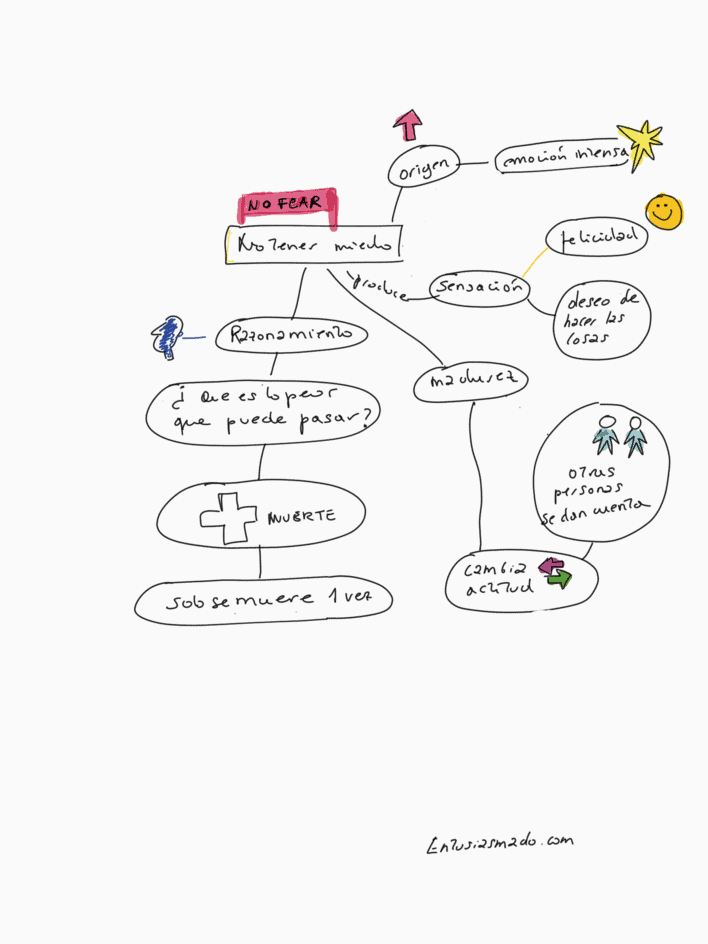 origen
emoción intensa
NO FEAR
No tener miedo
produce
sensación
felicidad
deseo de
hacer las
cosas
Razonamiento
¿ Que es lo peor
que puede pasar?
MUERTE
solo se muere 1 vez
madurez
otras
personas
se dan cuenta
cambia
actitud
Entusiasmado.com